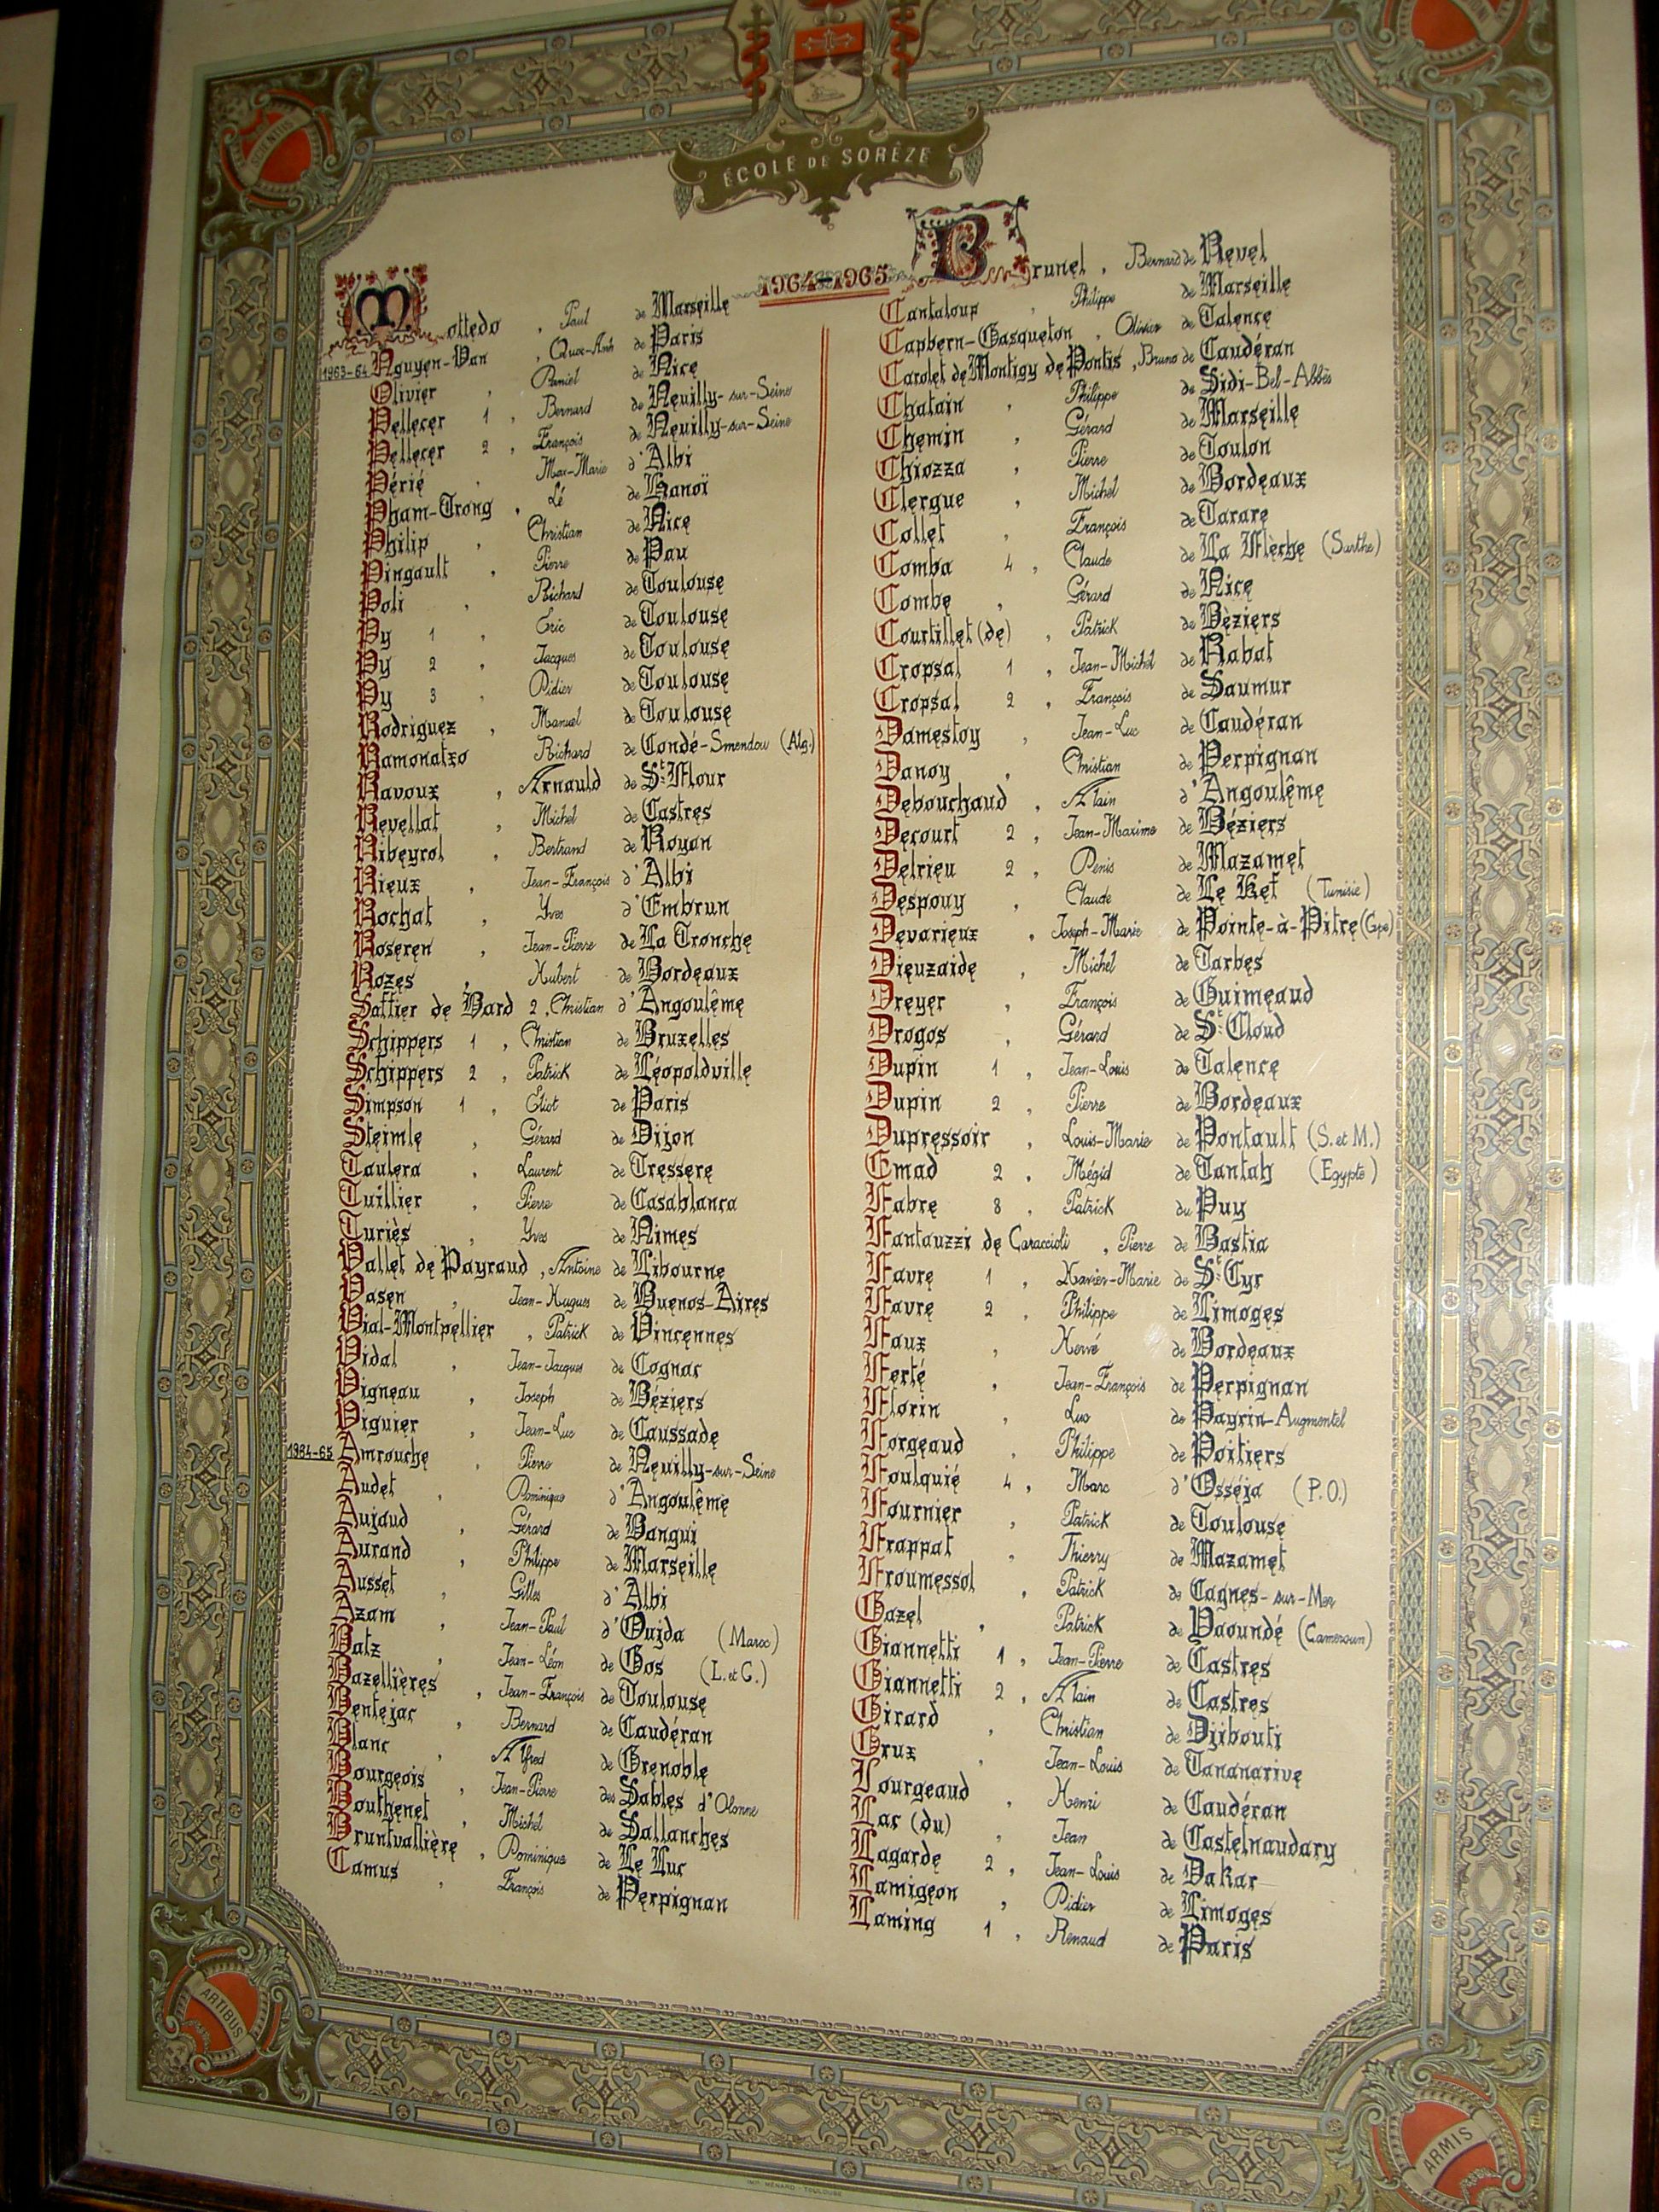 SCIENTIIS
ÉCOLE DE SORÈZE
1964-1965
Mottedo, Paul de Marseille
1963-64 Nguyen-Van, Quoc-Anh de Paris
Olivier, Daniel de Nice
Pellecer 1, Bernard de Neuilly-sur-Seine
Pellecer 2, François de Neuilly-sur-Seine
Périé, Max-Marie d'Albi
Pham-Trong, Lé de Hanoï
Philip, Christian de Nice
Pingault, Pierre de Pau
Poli, Richard de Toulouse
Py 1, Eric de Toulouse
Py 2, Jacques de Toulouse
Py 3, Didier de Toulouse
Rodriguez, Manuel de Toulouse
Ramonatxo Richard de Condé-Smendou (Alg.)
Ravoux, Arnauld de St Flour
Revellat, Michel de Castres
Ribeyrol, Bertrand de Royan
Rieux, Jean-François d'Albi
Rochat, Yves d'Embrun
Roseren, Jean-Pierre de La Tronche
Rozes, Hubert de Bordeaux
Saffier de Bard 2, Christian d'Angoulême
Schippers 1, Christian de Bruxelles
Schippers 2, Patrick de Léopoldville
Simpson 1, Eliot de Paris
Steimle, Gérard de Dijon
Taulera, Laurent de Tressere
Tuillier, Pierre de Casablanca
Turiès, Yves de Nimes
Vallet de Payraud, Antoine de Libourne
Vasen, Jean-Hugues de Buenos-Aires
Vial-Montpellier, Patrick de Vincennes
Vidal, Jean-Jacques de Cognac
Vigneau, Joseph de Béziers
Viguier, Jean-Luc de Caussade
1964-65 Amrouche, Pierre de Neuilly-sur-Seine
Audet, Dominique d'Angoulême
Aujaud, Gérard de Bangui
Aurand, Philippe de Marseille
Ausset, Gilles d'Albi
Azam, Jean-Paul d'Oujda (Maroc)
Batz, Jean-Léon de Gos (L. et G.)
Bazellières, Jean-François de Toulouse
Bentejac, Bernard de Caudéran
Blanc, Alfred de Grenoble
Bourgeois, Jean-Pierre des Sables d'Olonne
Bouthenet, Michel de Sallanches
Bruntvallière, Dominique de Le Luc
Camus, François de Perpignan
Brunel, Bernard de Revel
Cantaloup, Philippe de Marseille
Capbern-Gasqueton, Olivier de Talence
Carolet de Montigy de Pontis, Bruno de Caudéran
Chatain, Philippe de Sidi-Bel-Abbès
Chemin, Gérard de Marseille
Chiozza, Pierre de Toulon
Clergue, Michel de Bordeaux
Collet, François de Tarare
Comba 4, Claude de La Flèche (Sarthe)
Combe, Gérard de Nice
Courtillet (de), Patrick de Bèziers
Cropsal 1, Jean-Michel de Rabat
Cropsal 2, François de Saumur
Damestoy, Jean-Luc de Caudéran
Danoy, Christian de Perpignan
Debouchaud, Alain d'Angoulême
Decourt 2, Jean-Maxime de Béziers
Delrieu 2, Denis de Mazamet
Despouy, Claude de Le Kef (Tunisie)
Devarieux, Joseph-Marie de Pointe-à-Pitre (Gpe)
Dieuzaide, Michel de Tarbes
Dreyer, François de Guimeaud
Drogos, Gérard de St Cloud
Dupin 1, Jean-Louis de Talence
Dupin 2, Pierre de Bordeaux
Dupressoir, Louis-Marie de Pontault (S. et M.)
Emad 2, Mégid de Tantah (Egypte)
Fabre 8, Patrick du Puy
Fantauzzi de Caraccioli, Pierre de Bastia
Favre 1, Xavier-Marie de St Cyr
Favre 2, Philippe de Limoges
Faux, Hervé de Bordeaux
Ferté, Jean-François de Perpignan
Florin, Luc de Payrin-Augmentel
Forgeaud, Philippe de Poitiers
Foulquié 4, Marc d'Osséja (P.O.)
Fournier, Patrick de Toulouse
Frappat, Thierry de Mazamet
Froumessol, Patrick de Cagnes-sur-Mer
Gazel, Patrick de Yaoundé (Cameroun)
Giannetti 1, Jean-Pierre de Castres
Giannetti 2, Alain de Castres
Girard, Christian de Djibouti
Grux, Jean-Louis de Tananarive
Jourgeaud, Henri de Caudéran
Lac (du), Jean de Castelnaudary
Lagarde 2, Jean-Louis de Dakar
Lamigeon, Didier de Limoges
Laming 1, Renaud de Paris
ARTIBUS
ARMIS
IMP. MÉNARD - TOULOUSE